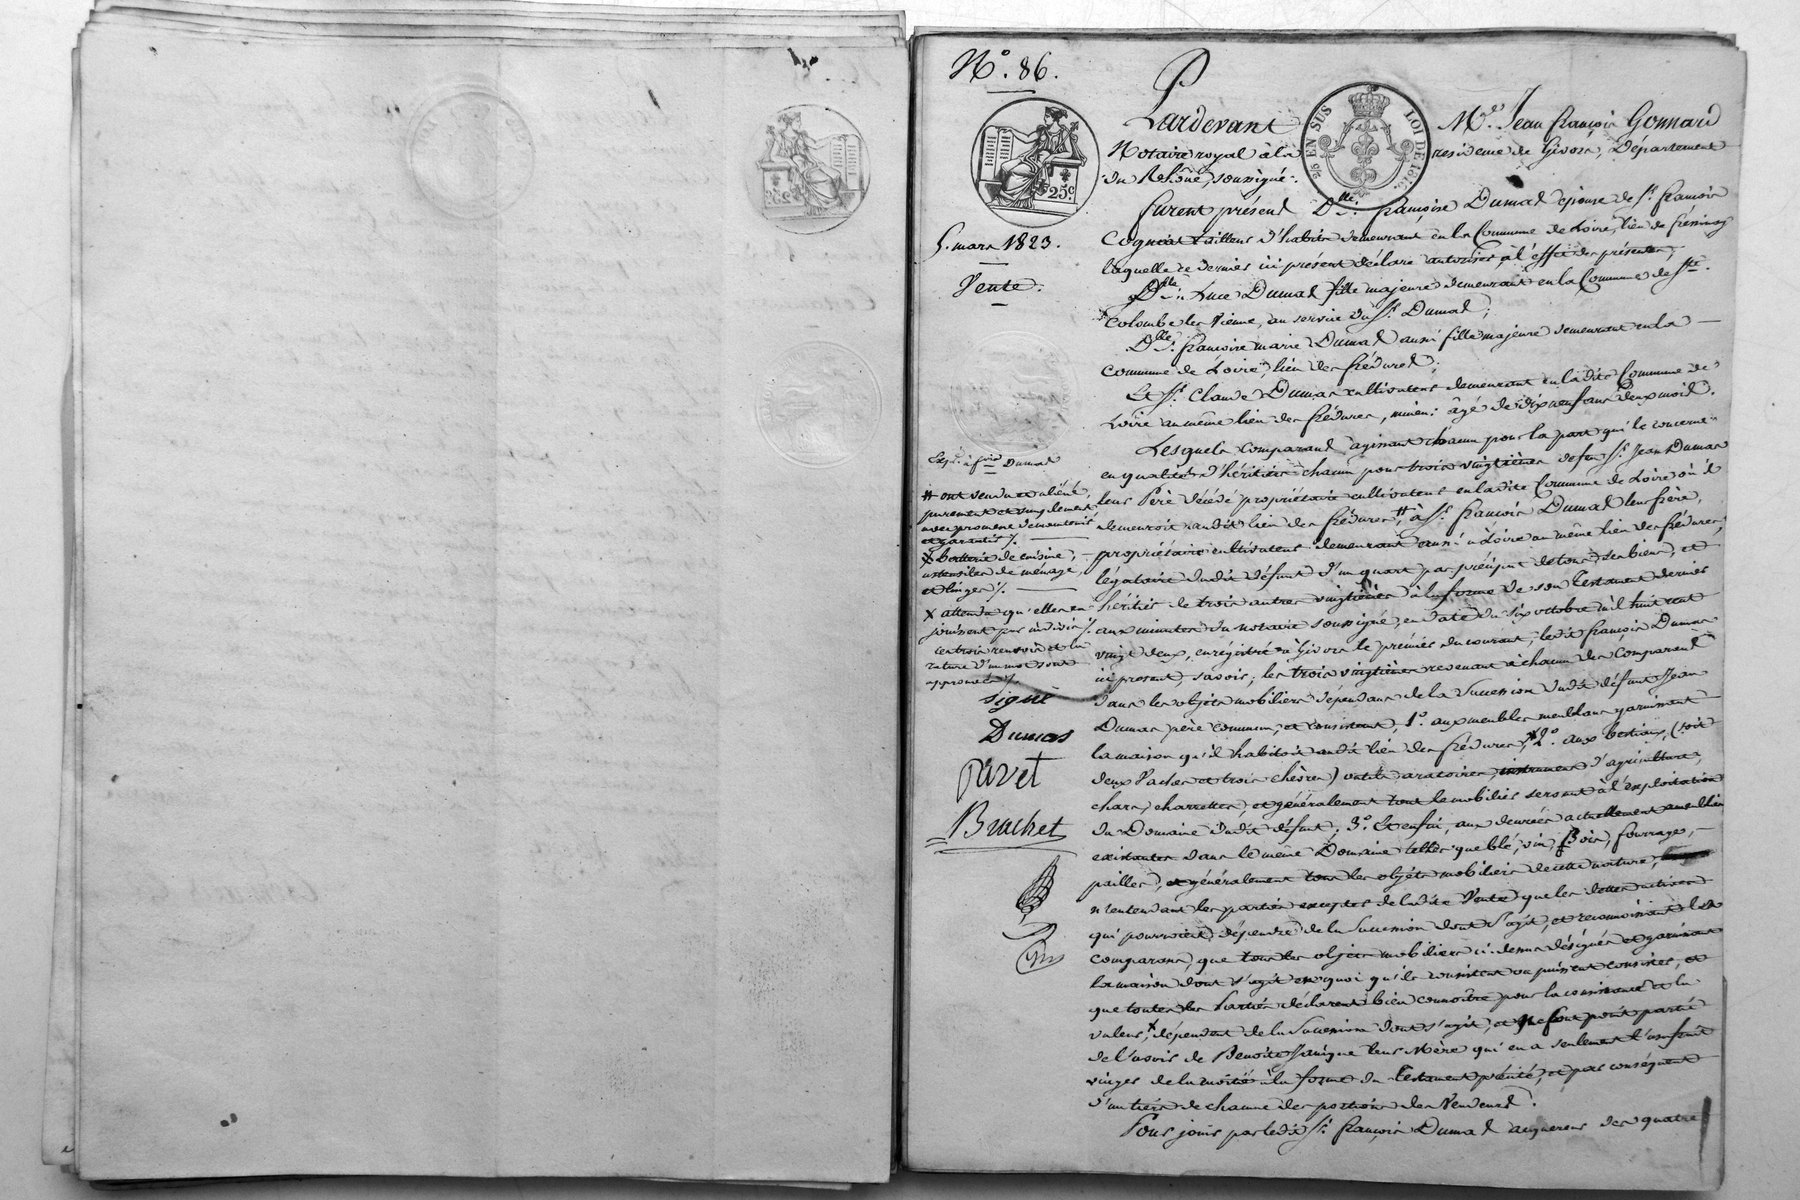 N.° 86.
5. mars 1823.
Vente.
25 EN SUS LOI DE 1816.
25.c
Pardevant M.e Jean françois Gonnard
Notaire royal à la résidence de Givors, Département
du Rhône, soussigné.
furent présens D.lle françoise Dumas épouse de S.r françois
demeurant en la Commune de Loire, lieu de
laquelle ce dernier ici présent déclare autoriser à l'effet des présentes,
D.lle Luce Dumas fille majeure demeurant en la Commune de S.te
Colombe les Vienne, au service du S.r Dumas;
D.lle françoise marie Dumas aussi fille majeure demeurant en la
commune de Loire, lieu des
Et S.r Claude Dumas cultivateur demeurant en la dite Commune de
Loire au même lieu des mineur âgé de dix neuf ans deux mois.
Lesquels comparans agissant chacun pour la part qui le concerne
en qualité d'héritiers chacun pour trois vingtièmes de feu S.r Jean Dumas
leur Père décédé propriétaire cultivateur en la dite Commune de Loire où il
demeuroit audit lieu des # à S.r françois Dumas leur frère,
propriétaire cultivateur demeurant aussi à Loire au même lieu des
légataire dudit défunt d'un quart par préciput de tous ses biens, et
héritier de trois autres vingtièmes à la forme de son testament dernier
aux minutes du notaire soussigné, en date du six octobre mil huit cent
vingt deux, enregistré à Givors le premier du courant, ledit françois Dumas
ici présent, savoir; les trois vingtièmes revenant à chacun des comparans
dans les objets mobiliers dépendans de la Succession dudit défunt Jean
Dumas père commun, et consistant, 1.° aux meubles meublans garnissant
la maison qu'il habitoit audit lieu des 2.° aux bestiaux, (soit
deux Vaches et trois chèvres) outils aratoires, instrumens d'agriculture,
chars, charrettes, et généralement tout le mobilier servant à l'exploitation
du Domaine dudit défunt; 3.° Et enfin, aux denrées actuellement
existantes dans le même Domaine telles que blé, vin, Bois, fourrage,
pailles, et généralement tous les objets mobiliers de cette nature,
n'entendant les parties excepter de la dite Vente que les dettes actives
qui pourroient dépendre de la Succession dont s'agit, et reconnoissant les
comparans, que tous les objets mobiliers ci-dessus désignés et garnissant
la maison dont s'agit en quoi qu'ils consistent ou puissent consister, et
que toutes les Parties déclarent bien connoître pour la consistance et la
valeur, dépendent de la Succession dont s'agit, et ne font point partie
de l'avoir de Benoite leur Mère qui en a seulement l'usufruit
viager de la moitié à la forme du testament précité, et par conséquent
d'un tiers de chacune des portions des Vendeurs.
Pour jouir par ledit S.r françois Dumas acquéreur des quatre
# ont vendu et aliéné,
purement et simplement
avec promesse de maintenir
et garantir
X batterie de cuisine,
ustensiles de ménage,
et linges
X attendu qu'elles en
jouissent par indivis
les trois renvois et la
rature d'un mot sont
approuvés
signé
Dumas
Pivet
Brachet